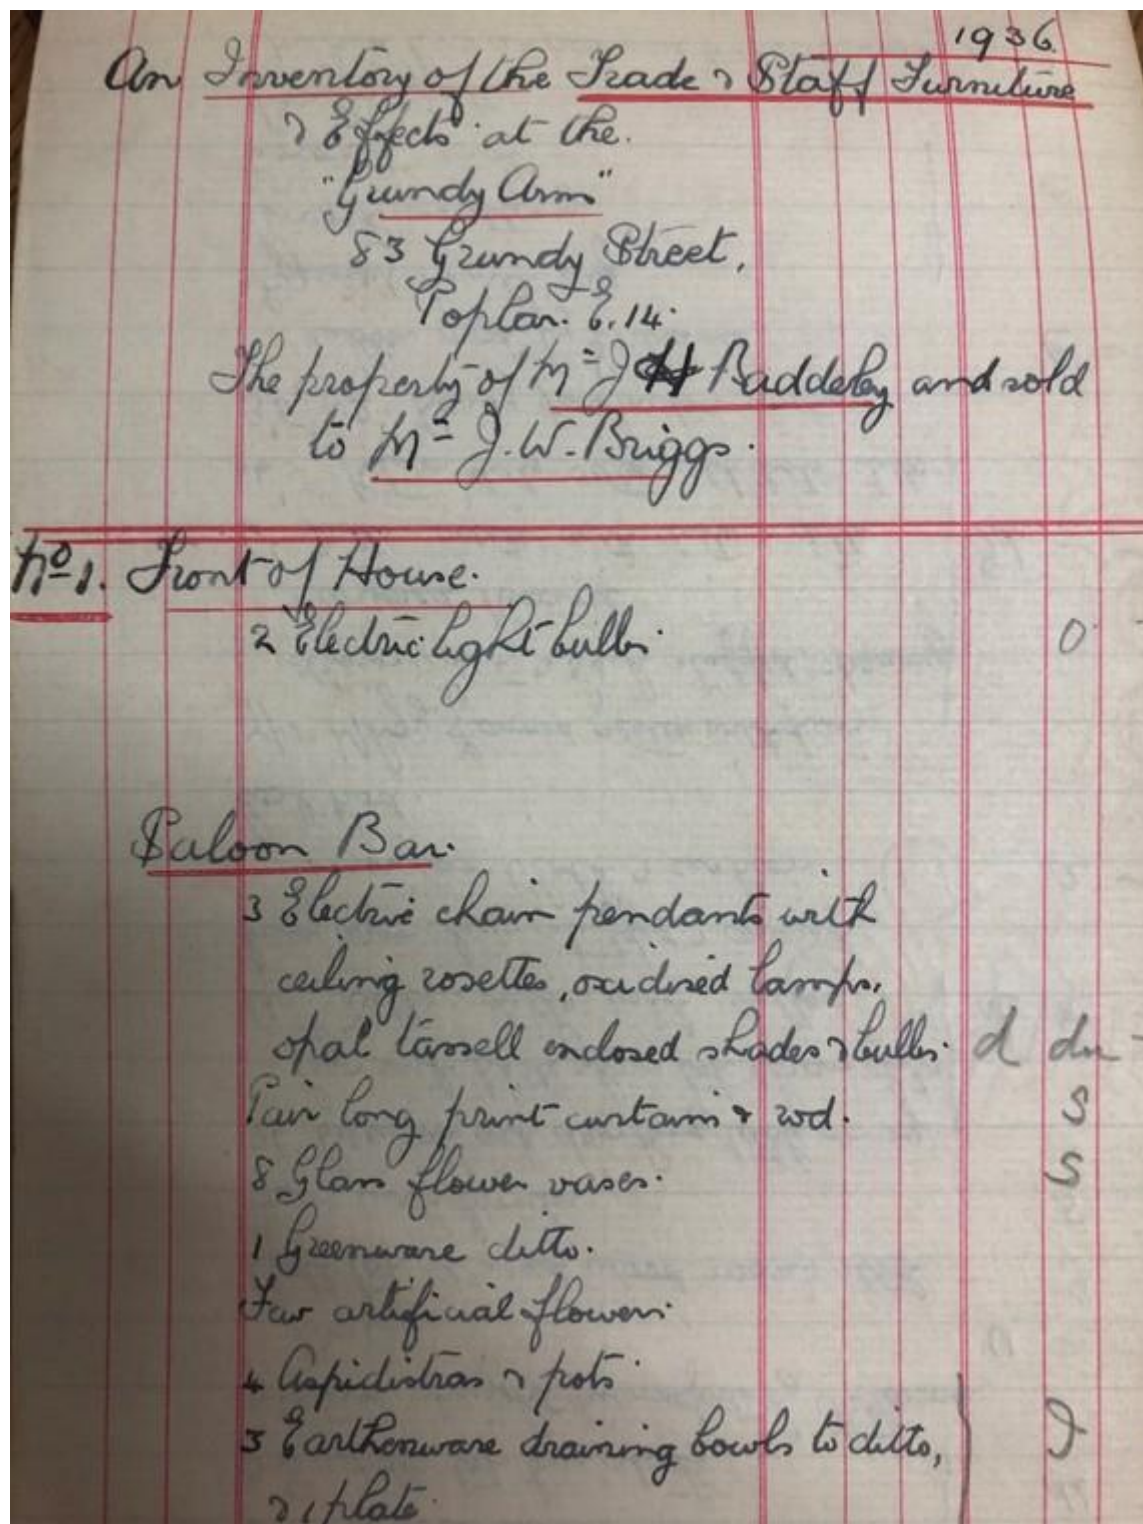 1936
An Inventory of the Trade & Staff Furniture
& Effects at the
"Grundy Arms"
83 Grundy Street,
Poplar. E.14.
The property of Mr J Baddeley and sold
to Mr J.W. Briggs.
No 1. Front of House.
2 Electric light bulbs. O
Saloon Bar.
3 Electric chain pendants with
ceiling rosettes, oxidised lamps,
opal tassell enclosed shades & bulbs. d du
Pair long print curtains & rod. S
8 Glass flower vases. S
1 Greenware ditto.
Few artificial flowers.
4 Aspidistras & pots
3 Earthenware draining bowls to ditto,
& 1 plate.